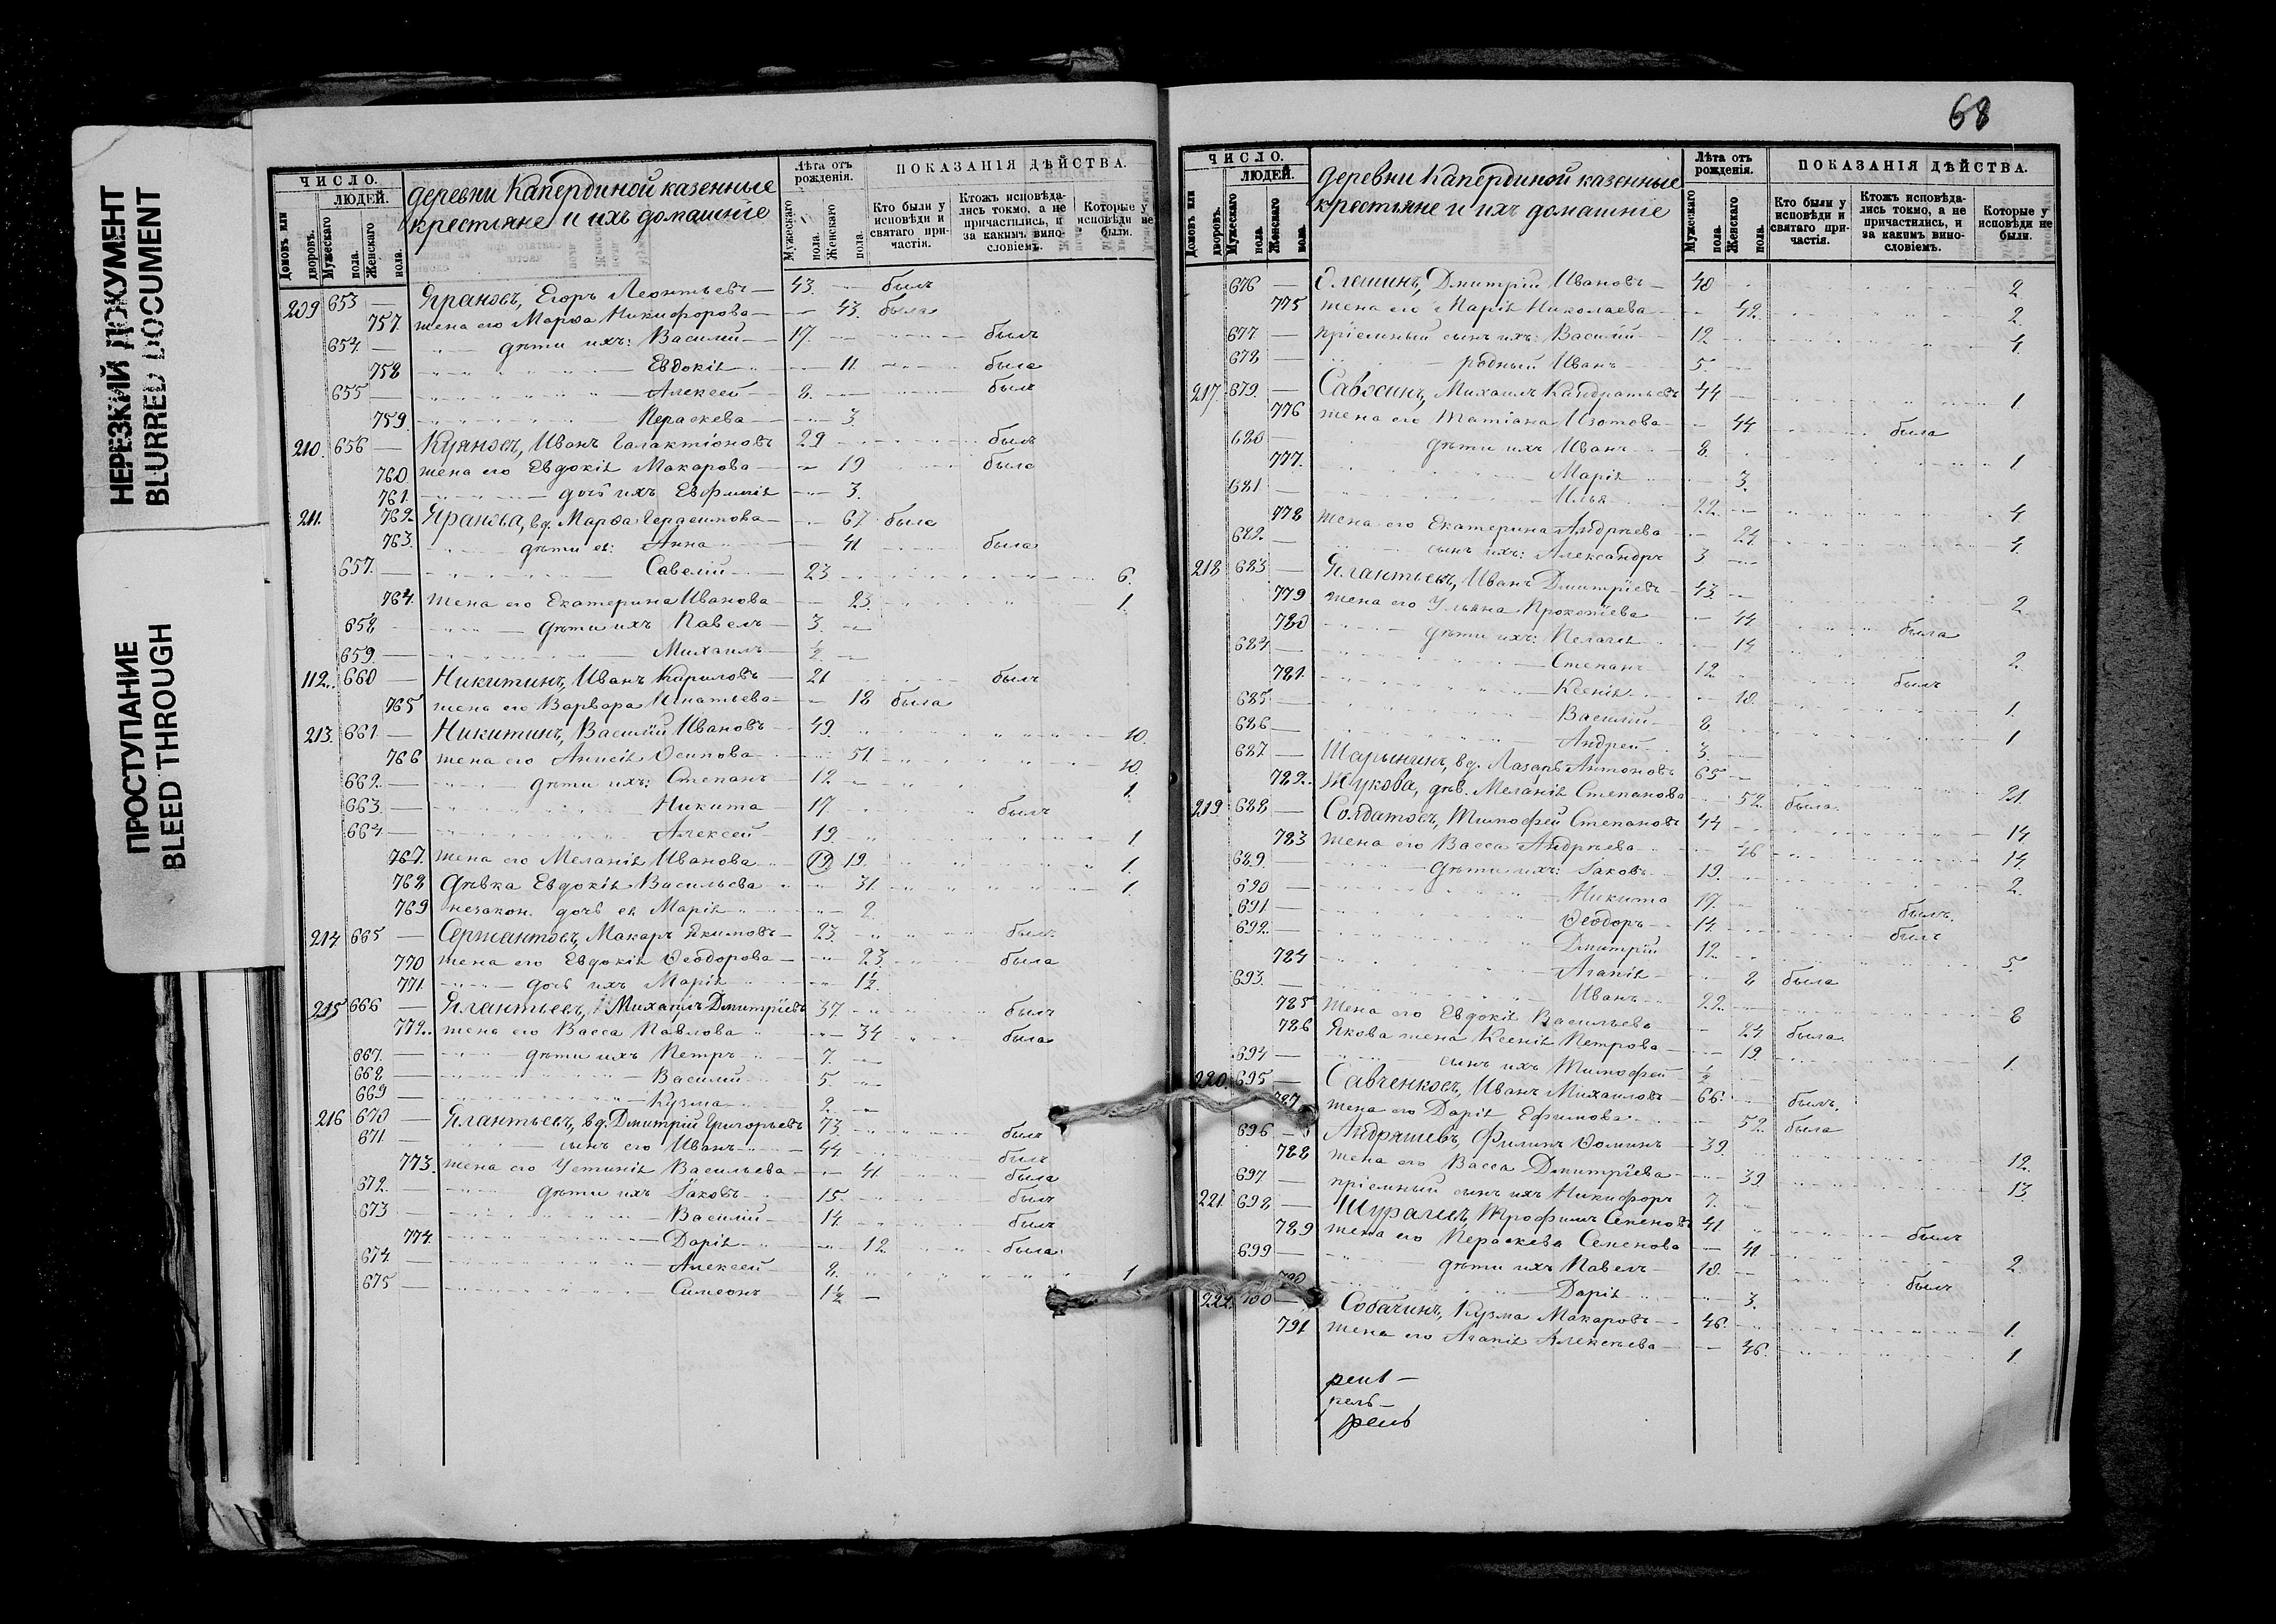 НЕРЕЗКИЙ ДОКУМЕНТ
BLURRED DOCUMENT
ПРОСТУПАНИЕ
BLEED THROUGH
ЧИСЛО.
ЛЮДЕЙ.
Домовъ или дворовъ.
Мужескаго пола.
Женскаго пола.
деревни Капердиной казенные
крестьяне и ихъ домашніе
Лѣта отъ рожденія.
Мужескаго пола.
Женскаго пола.
ПОКАЗАНІЯ ДѢЙСТВА.
Кто были у исповѣди и святаго причастія.
Ктожъ исповѣдались токмо, а не причастились, и за какимъ винословіемъ.
Которые у исповѣди не были.
209 653 — Егоръ Леонтьевъ — 43 — былъ
757. жена его Марѳа Никифорова — 43. была
654. — дѣти ихъ: Василій — 17. — былъ
758 Евдокія 11. была
655 — Алексей — 8. — былъ
759. Параскева — 3.
210. 656 — Иванъ Галактіоновъ 29 былъ
760. жена его Евдокія Макарова — 19 была
761. дочь ихъ Евфимія 3.
211. 762. вд. Марѳа Герасимова — 67 была
763. дѣти ея: Анна 41. была
657. — Савелій — 23 6.
764. жена его Екатерина Иванова — 23. 1.
658 дѣти ихъ Павелъ — 3. —
659. — Михаилъ — ½ —
112. 660 — Никитинъ, Иванъ Кариловъ — 21 былъ
765 жена его Варвара Игнатьева — 18 была
213. 661 — Никитинъ, Василій Ивановъ — 49. 10.
766 жена его Анисія Осипова 51. 10.
662. — дѣти ихъ: Степанъ — 12 — 1.
663. — Никита 17 былъ
664 — Алексей 19. 1
767. жена его Меланія Иванова 19 19. 1.
768 дѣвка Евдокія Васильева 31. 1.
769 незакон. дочь ея Марія 2.
214 665 — Сержантовъ, Макаръ Якимовъ — 23. былъ
770 жена его Евдокія Ѳеодорова — 23. была
771. дочь ихъ Марія 1½
215 666 — Ялантьевъ, Михаилъ Дмитріевъ 37. былъ
772. жена его Васса Павлова 34 была
667. — дѣти ихъ Петръ 7. —
668 — Василій 5. —
669 — Кузма 2. —
216 670 — Ялантьевъ, вд. Дмитрій Григорьевъ 73 былъ
671 — сынъ его Иванъ 44. былъ
773. жена его Устинія Васильева — 41. была
672. — дѣти ихъ Іаковъ 15. былъ
673 — Василій 14. былъ
774. Дарія 12. была
674. — Алексей 8. 1
675 — Симеонъ 1½ —
68
ЧИСЛО.
ЛЮДЕЙ.
Домовъ или дворовъ.
Мужескаго пола.
Женскаго пола.
деревни Капердиной казенные
крестьяне и ихъ домашніе
Лѣта отъ рожденія.
Мужескаго пола.
Женскаго пола.
ПОКАЗАНІЯ ДѢЙСТВА.
Кто были у исповѣди и святаго причастія.
Ктожъ исповѣдались токмо, а не причастились, и за какимъ винословіемъ.
Которые у исповѣди не были.
676 — Дмитрій Ивановъ — 40 2
775 жена его Марія Николаева 42. 2.
677 — пріемный сынъ ихъ: Василій 12 1.
678 — родный Иванъ 5.
217. 679. — Михаилъ Кандратьевъ 44 1.
776 жена его Татіана Изотова — 44 была
680 — дѣти ихъ Иванъ 8. 1
777. Марія 3.
681 — Илья 22 1
778 жена его Екатерина Андрѣева 24. 1.
682. — сынъ ихъ: Александръ 3
218 683 — Ялантьевъ, Иванъ Дмитріевъ 43. 2
779 жена его Ульяна Прокопіева 44 была
780 дѣти ихъ: Пелагія 14 2.
684 — Степанъ 12. былъ
781. Ксенія 10. 1.
685. — Василій 8. 1
686 — Андрей 3.
687 — вд. Лазарь Антоновъ 65 21.
782. Жукова, дѣв. Меланія Степанова 52. была.
219. 688 — Солдатовъ, Тимофей Степановъ 44 14
783 жена его Васса Андрѣева 46 14
689. — дѣти ихъ: Іаковъ 19. 2.
690 — Никита 17. былъ.
691 — Ѳеодоръ 14. былъ
692. — Дмитрій 12. 5.
784 Агапія 8 была
693. — Иванъ 22. 8
785 жена его Евдокія Васильева 24 была.
786 Якова жена Ксенія Петрова 19. 1.
694 — сынъ ихъ Тимофей ½
220 695 — Савченковъ, Иванъ Михаиловъ — 66. былъ.
787 жена его Дарія Ефимова 52. была
696 — Андряшевъ, Филипъ Ѳоминъ — 39. 12.
788 жена его Васса Дмитріева — 39. 13.
697 — пріемный сынъ ихъ Никифоръ 7.
221. 698 — Трофимъ Семеновъ 41 былъ
789 жена его Параскева Семенова — 41. 2
699 — дѣти ихъ Павелъ 10. былъ
790 Дарія 3.
222. 700 — Собачинъ, Кузма Макаровъ 46. 1.
791 жена его Агапія Алексеева — 46. 1.